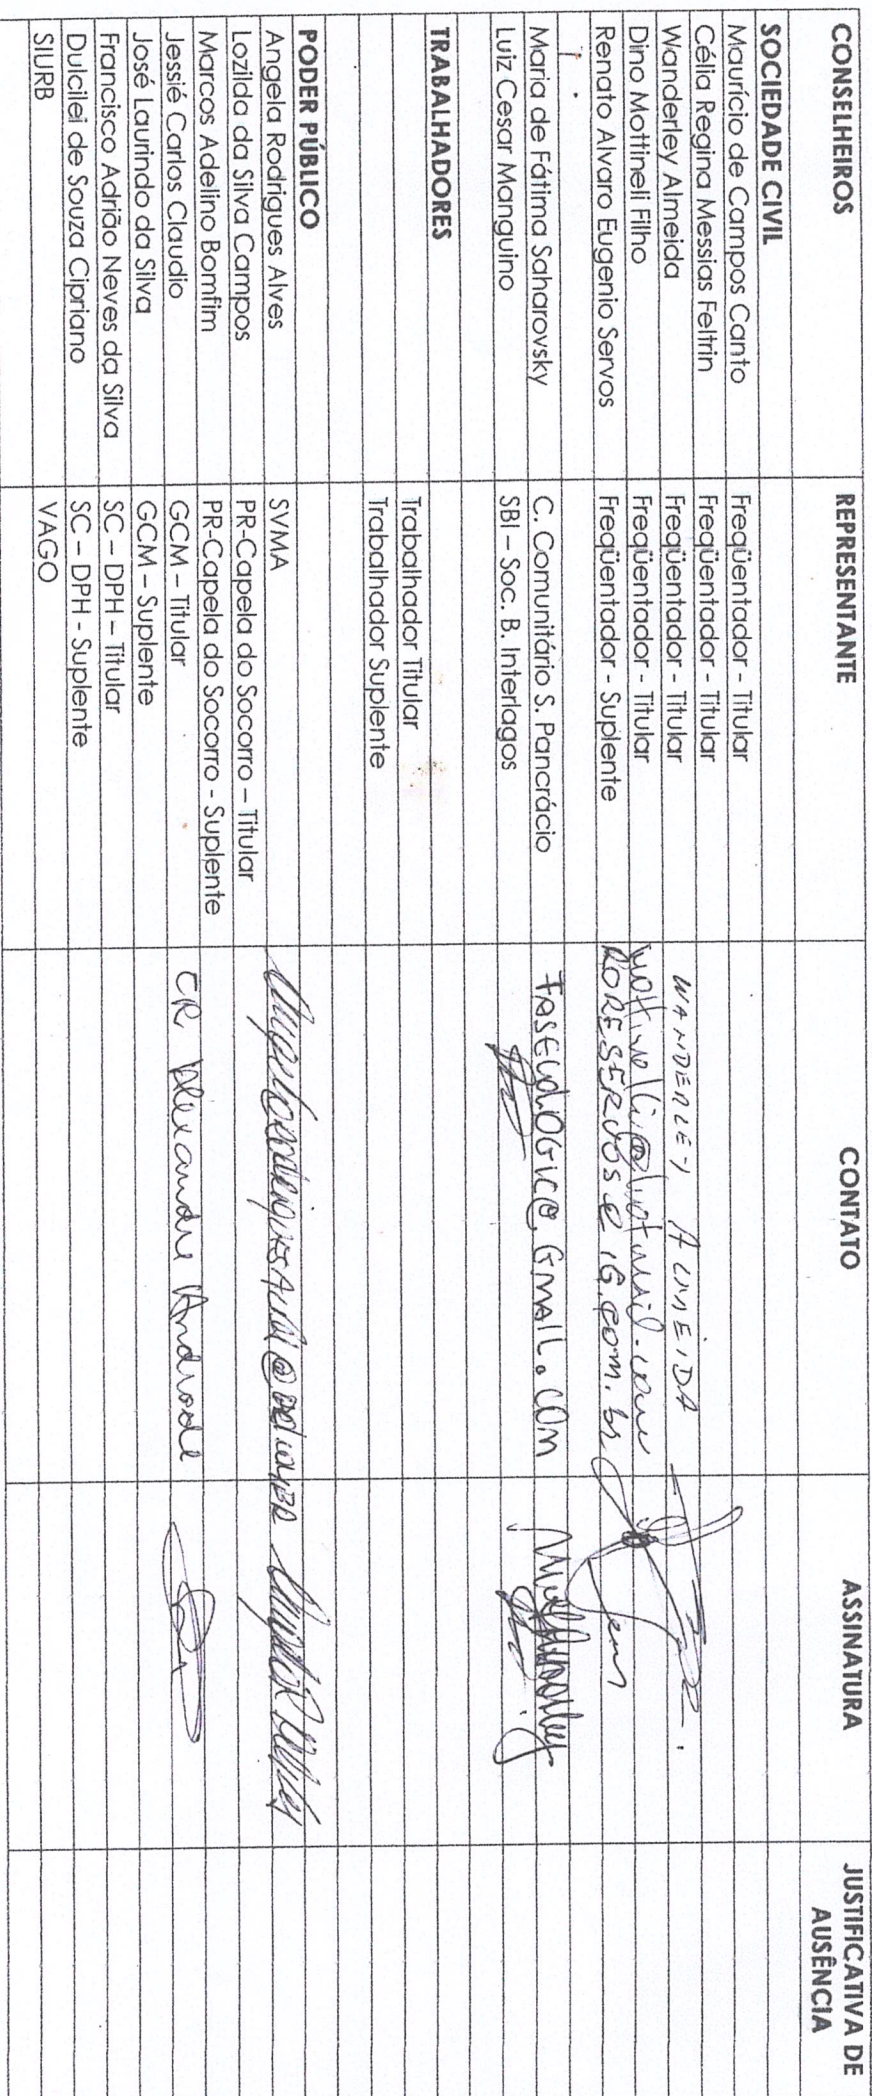 CONSELHEIROS REPRESENTANTE CONTATO ASSINATURA JUSTIFICATIVA DE AUSÊNCIA
SOCIEDADE CIVIL
Maurício de Campos Canto Freqüentador - Titular
Célia Regina Messias Feltrin Freqüentador - Titular
Wanderley Almeida Freqüentador - Titular WANDERLEY ALMEIDA
Dino Mottineli Filho Freqüentador - Titular
Renato Alvaro Eugenio Servos Freqüentador - Suplente
Maria de Fátima Saharovsky C. Comunitário S. Pancrácio GMAIL.COM
Luiz Cesar Manguino SBI – Soc. B. Interlagos
TRABALHADORES
Trabalhador Titular
Trabalhador Suplente
PODER PÚBLICO
Angela Rodrigues Alves SVMA
Lozilda da Silva Campos PR-Capela do Socorro – Titular
Marcos Adelino Bomfim PR-Capela do Socorro - Suplente
Jessié Carlos Claudio GCM – Titular CR Alexandre Andrade
José Laurindo da Silva GCM – Suplente
Francisco Adrião Neves da Silva SC – DPH – Titular
Dulcilei de Souza Cipriano SC – DPH - Suplente
SIURB VAGO